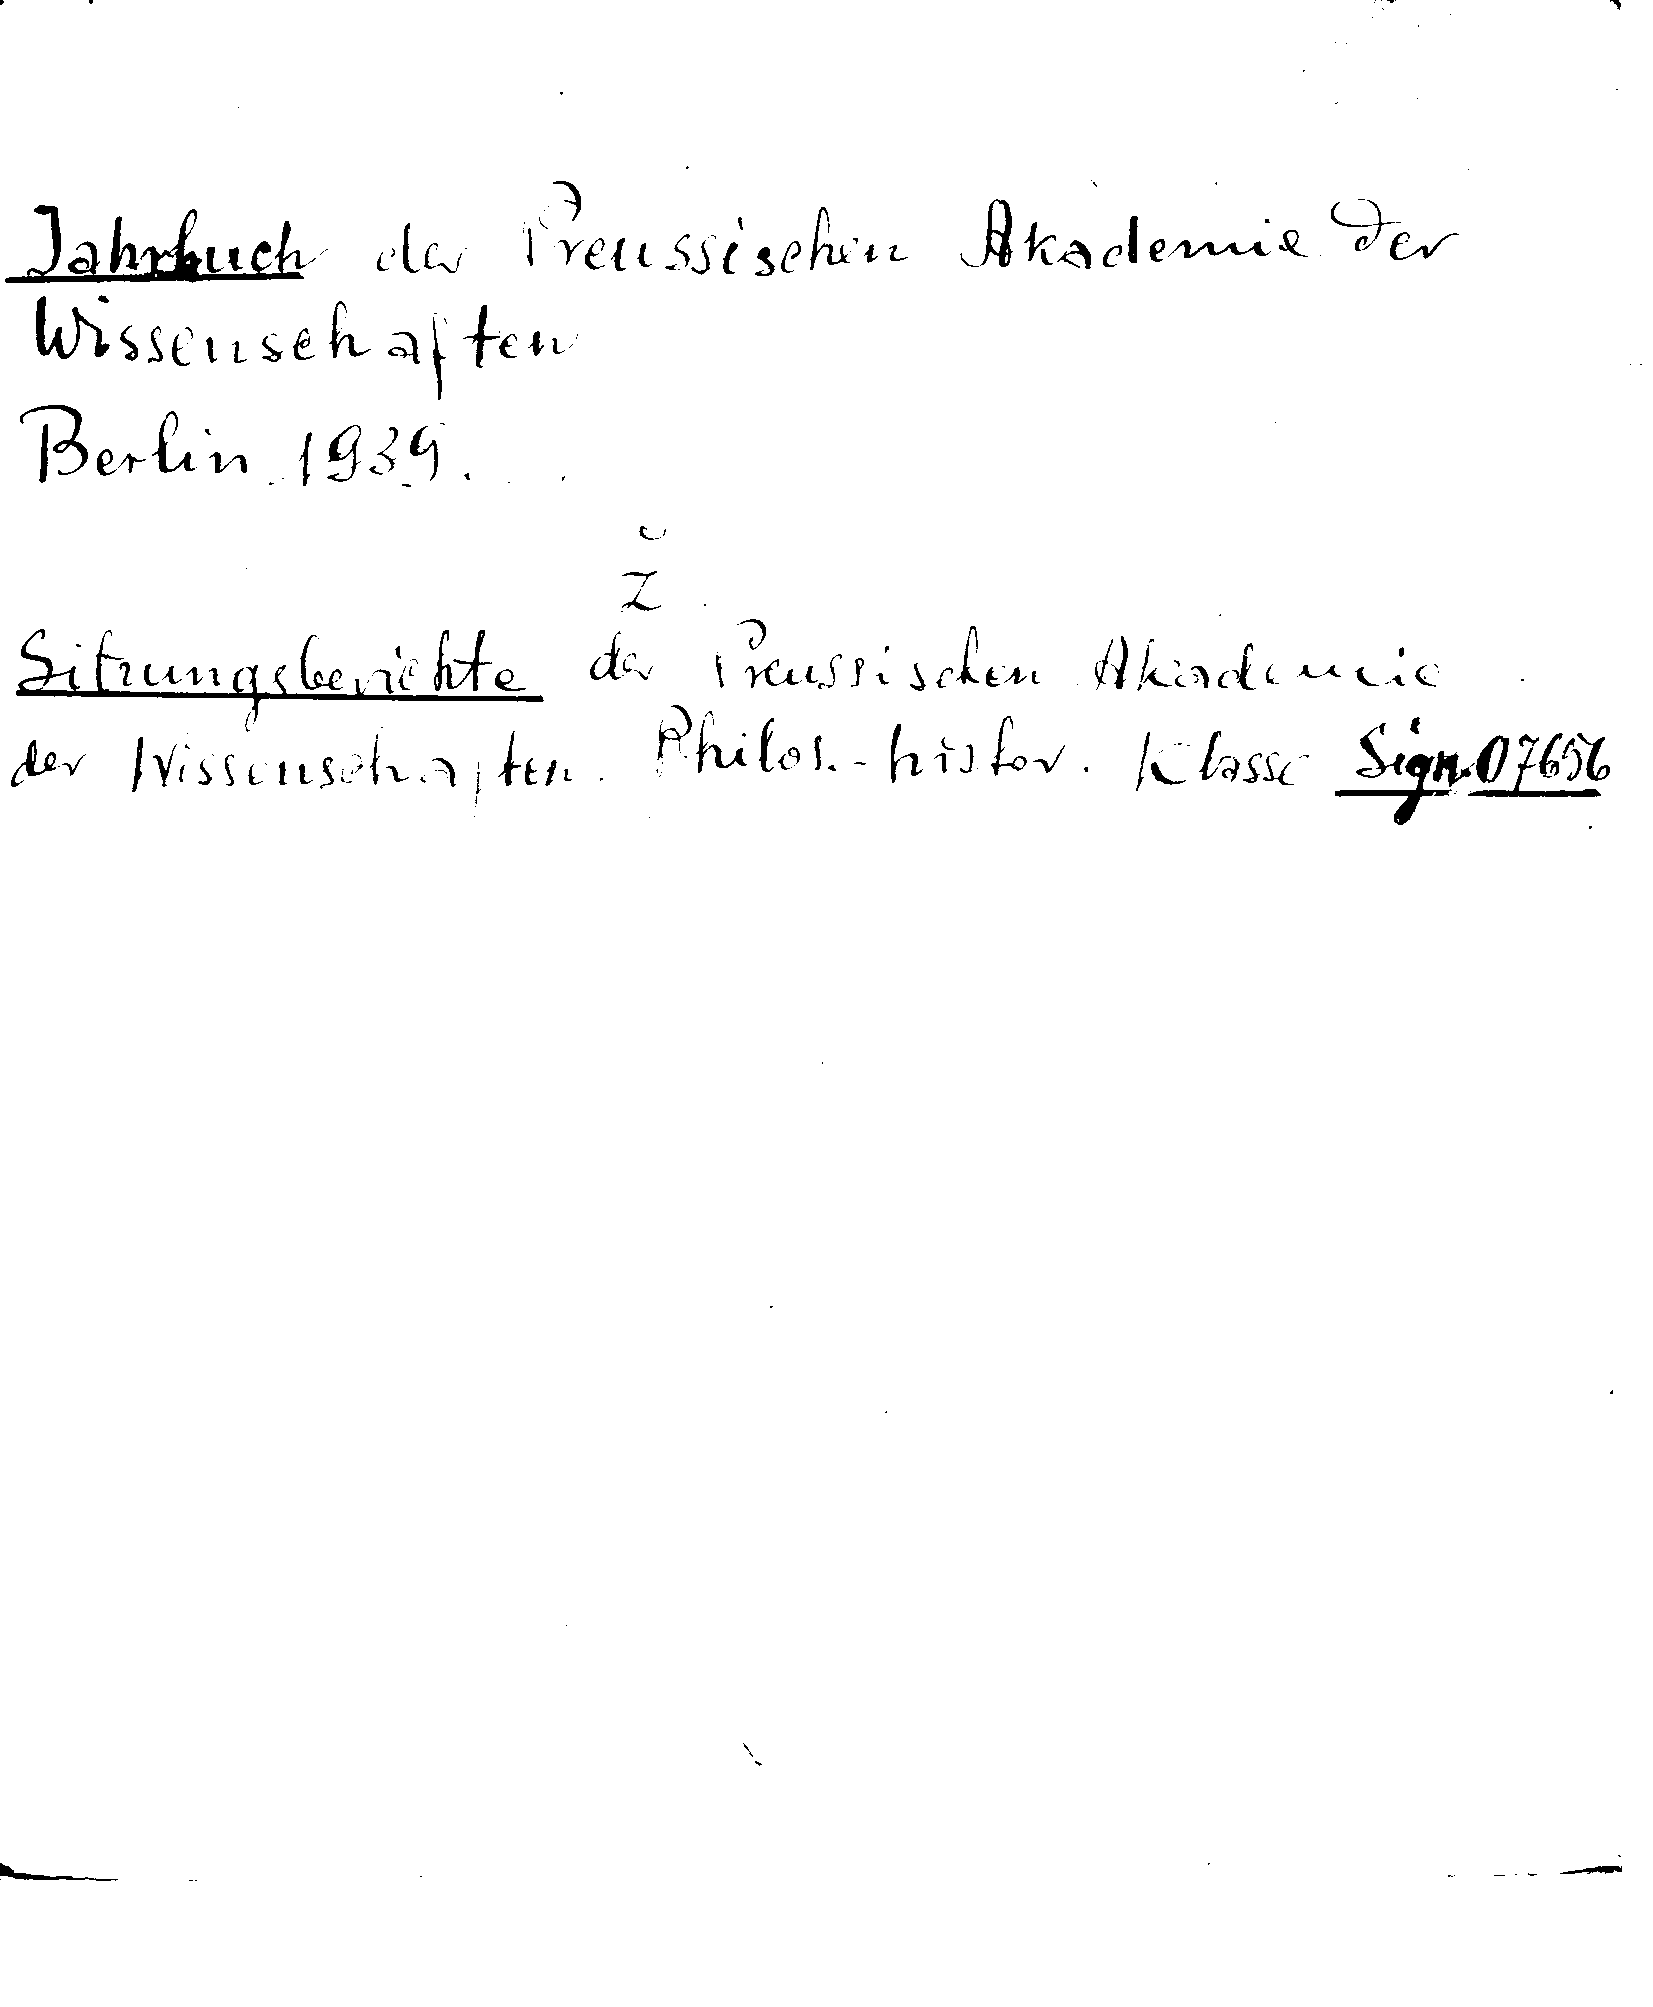 Jahrbuch der Preussischen Akademie der
Wissenschaften
Berlin 1939.
Z
Sitzungsberichte der Preussischen Akademie
der Wissenschaften. Philos.-histor. Klasse Sign. 07656